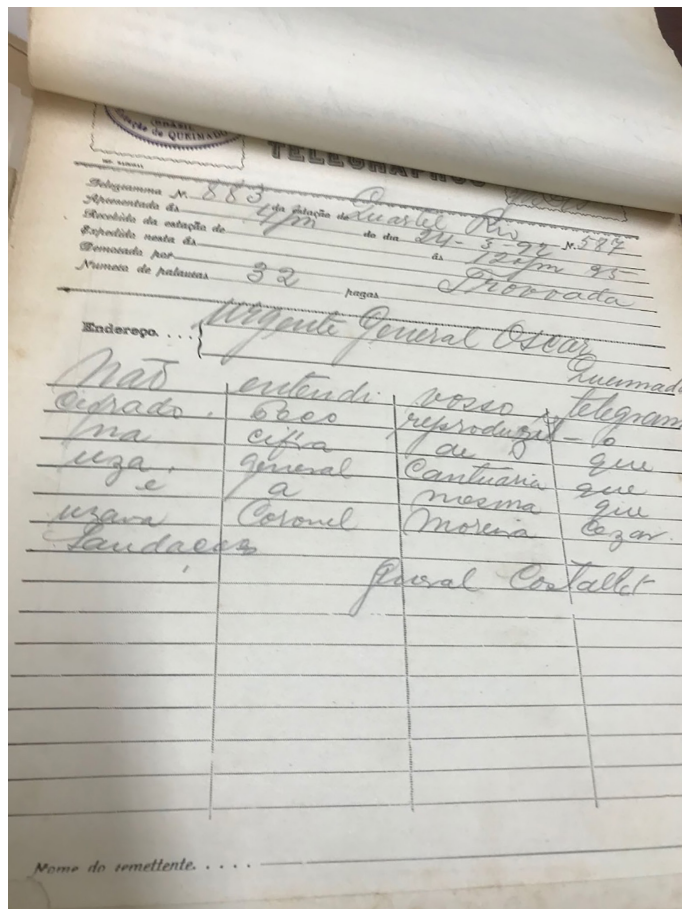 BRASIL
Estação de QUEIMADO
TELEGRAPHOS
Telegramma N. 883 da estação de Quartel Rio N. 587
Apresentada ás 4pm do dia 24-3-97 ás 12 pm 95
Recebida da estação de
Expedida nesta ás
Demorada por Trovoada
Numero de palavras 32 pagas
Endereço.... Urgente General Oscar
Queimad
Não entendi vosso telegram
cifrado. Peço reproduzil-o
na cifra de que
uza general Cantuaria que
é a mesma que
uzava Coronel Moreira Cezar.
Saudações
General Costallat
Nome do remettente.....